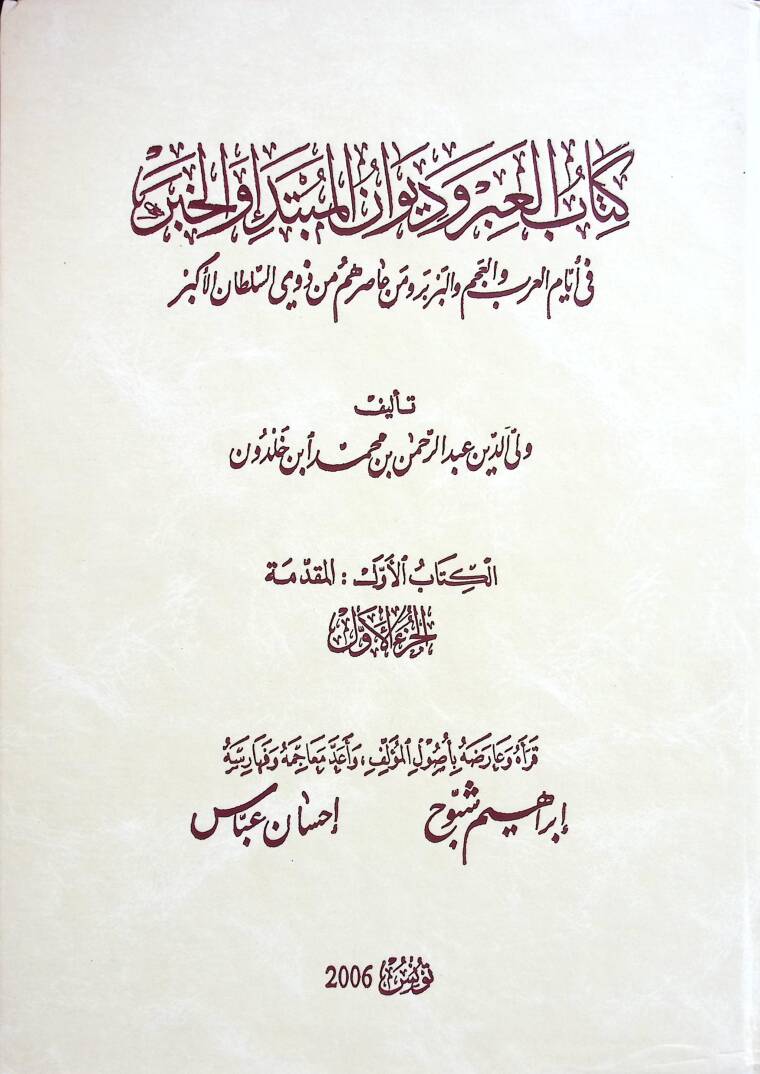 كِتَابُ العِبَرِ وَدِيوَانُ المُبْتَدَإِ وَالخَبَرِ
في أيّام العرب والعَجَم والبَرْبَر ومَن عاصرهُم من ذوي السّلطان الأكبر
تأليف
وليّ الدّين عبد الرّحمٰن بن محمّد ٱبن خَلْدُون
الْكِتَابُ الأَوَّل : المقدّمَة
الجُزءُ الأَوَّل
قَرَأَهُ وَعَارَضَهُ بِأُصُولِ المُؤَلِّفِ، وَأَعَدَّ مَعَاجِمَهُ وَفَهَارِسَهُ
إبراهيم شبّوح إحسان عبّاس
تونس 2006